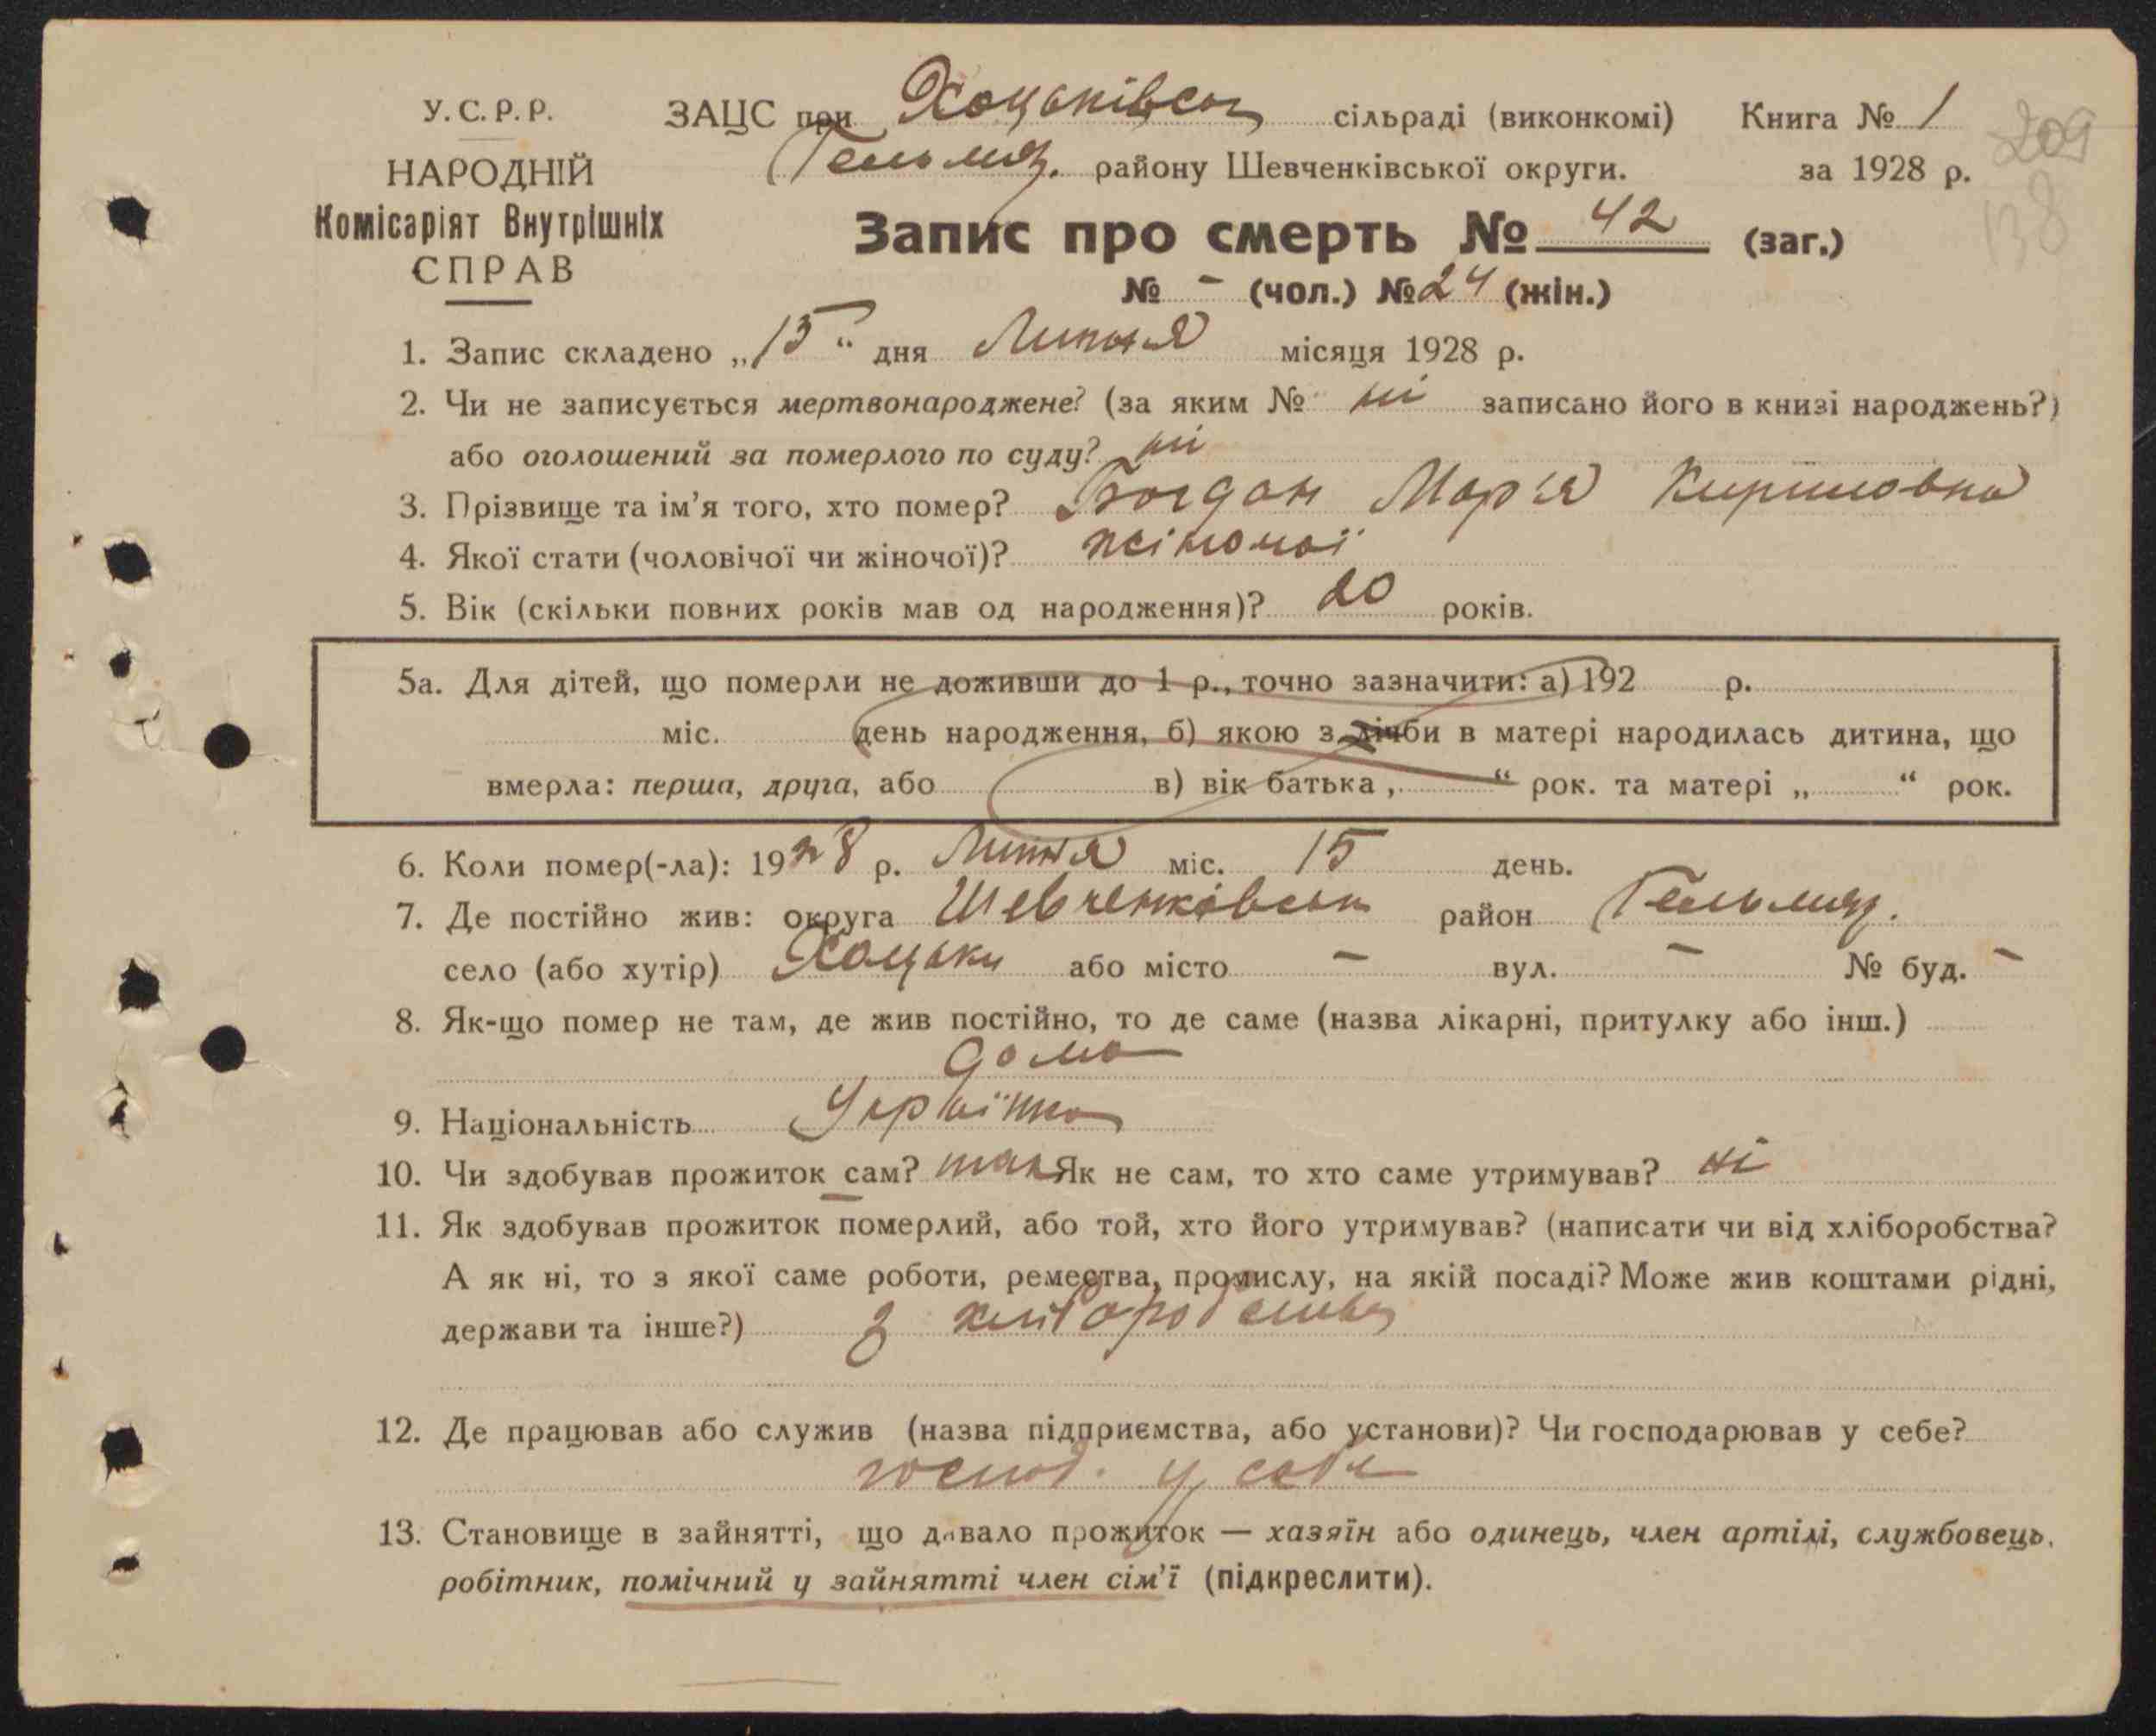 У.С.Р.Р. ЗАЦС при Хоцьківськ сільраді (виконкомі) Книга № 1
209
Гельмяз. району Шевченківської округи. за 1928 р.
НАРОДНІЙ
Комісаріят Внутрішніх
СПРАВ
138
Запис про смерть № 42 (заг.)
№ - (чол.) № 24 (жін.)
1. Запис складено „15“ дня Липня місяця 1928 р.
2. Чи не записується мертвонароджене? (за яким № ні записано його в книзі народжень?)
або оголошений за померлого по суду? ні
3. Прізвище та ім'я того, хто помер? Богдан Мар'я Кириловна
4. Якої стати (чоловічої чи жіночої)? жіночої
5. Вік (скільки повних років мав од народження)? 20 років.
5а. Для дітей, що померли не доживши до 1 р., точно зазначити: а) 192 р.
міс. день народження, б) якою з лічби в матері народилась дитина, що
вмерла: перша, друга, або в) вік батька „ “ рок. та матері „ “ рок.
6. Коли помер(-ла): 1928 р. Липня міс. 15 день.
7. Де постійно жив: округа Шевченківськ район Гельмяз.
село (або хутір) Хоцьки або місто - вул. - № буд. -
8. Як-що помер не там, де жив постійно, то де саме (назва лікарні, притулку або інш.)
дома
9. Національність Українка
10. Чи здобував прожиток сам? так Як не сам, то хто саме утримував? ні
11. Як здобував прожиток померлий, або той, хто його утримував? (написати чи від хліборобства?
А як ні, то з якої саме роботи, ремества, промислу, на якій посаді? Може жив коштами рідні,
держави та інше?) з хліборобства
12. Де працював або служив (назва підприємства, або установи)? Чи господарював у себе?
господ. у себе
13. Становище в зайнятті, що давало прожиток — хазяїн або одинець, член артілі, службовець,
робітник, помічний у зайнятті член сім'ї (підкреслити).